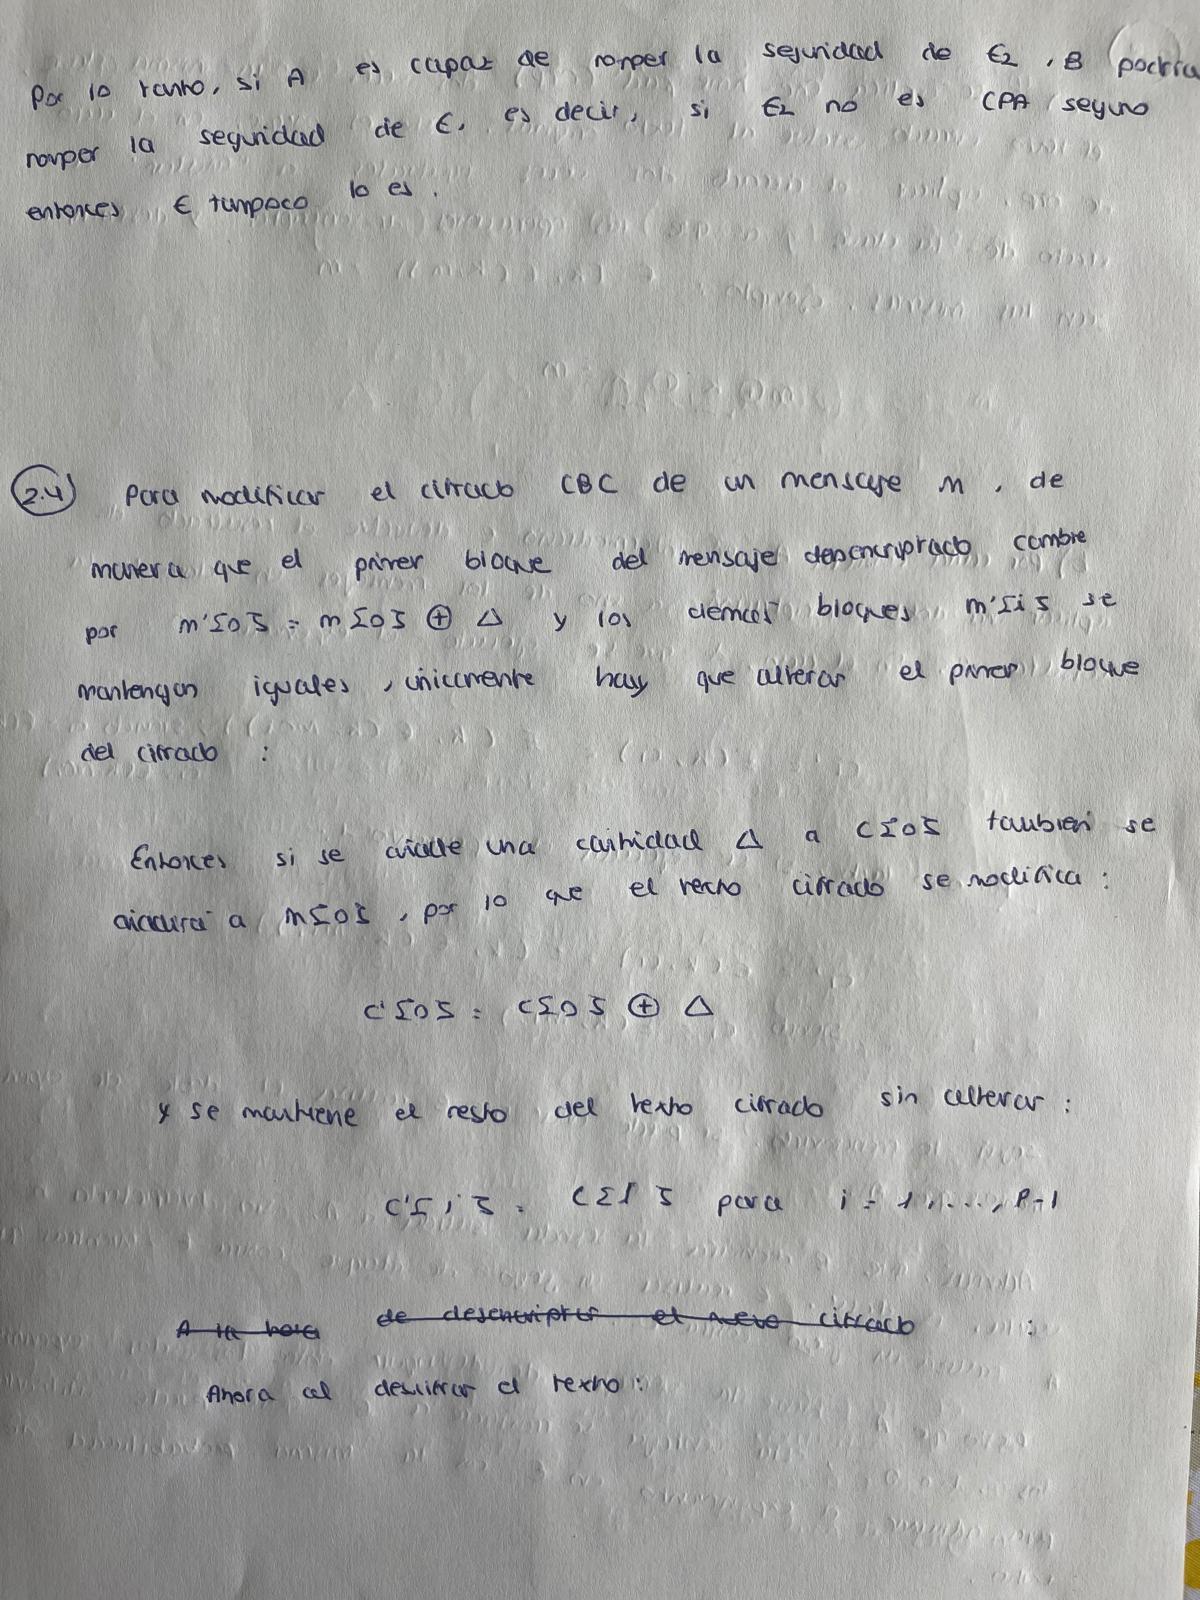 Por lo tanto, si A es capaz de romper la seguridad de E2, B podria
romper la seguridad de E, es decir, si E2 no es CPA seguro
entonces E tampoco lo es.
2.4) Para modificar el cifrado CBC de un mensaje m, de
manera que el primer bloque del mensaje desencriptado cambie
por m'[0] = m[0] ⊕ Δ y los demás bloques m'[i] se
mantengan iguales, únicamente hay que alterar el primer bloque
del cifrado :
Entonces si se añade una cantidad Δ a c[0] también se
añadirá a m[0], por lo que el texto cifrado se modifica :
c'[0] = c[0] ⊕ Δ
y se mantiene el resto del texto cifrado sin alterar :
c'[i] = c[i] para i = 1, ..., l-1
A la hora de desencriptar el nuevo cifrado :
Ahora al descifrar el texto :